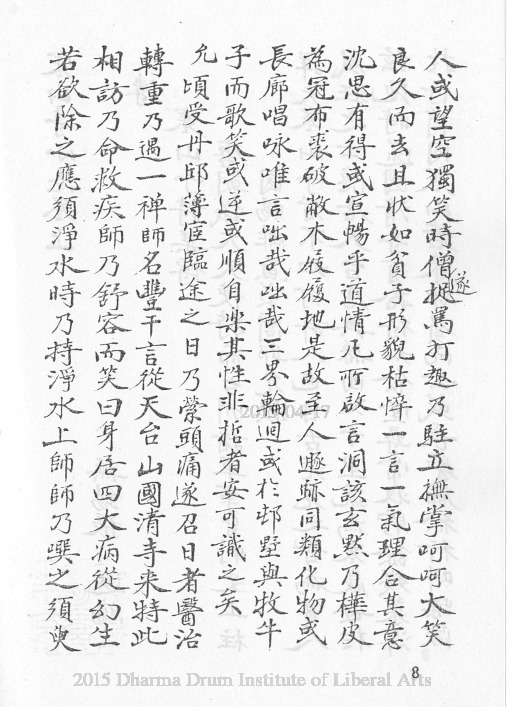 人或望空獨笑時僧遂捉罵打趣乃駐立撫掌呵呵大笑
良久而去且狀如貧子形貌枯悴一言一氣理合其意
沈思有得或宣暢乎道情凡所啟言洞該玄默乃樺皮
為冠布裘破敝木屐履地是故至人遯跡同類化物或
長廊唱咏唯言咄哉咄哉三界輪迴或於邨墅與牧牛
子而歌笑或逆或順自樂其性非哲者安可識之矣
允頃受丹邱薄宦臨途之日乃縈頭痛遂召日者醫治
轉重乃遇一禅師名豐干言從天台山國清寺来特此
相訪乃命救疾師乃舒容而笑曰身居四大病從幻生
若欲除之應須淨水時乃持淨水上師師乃噀之須臾
8
2015 Dharma Drum Institute of Liberal Arts